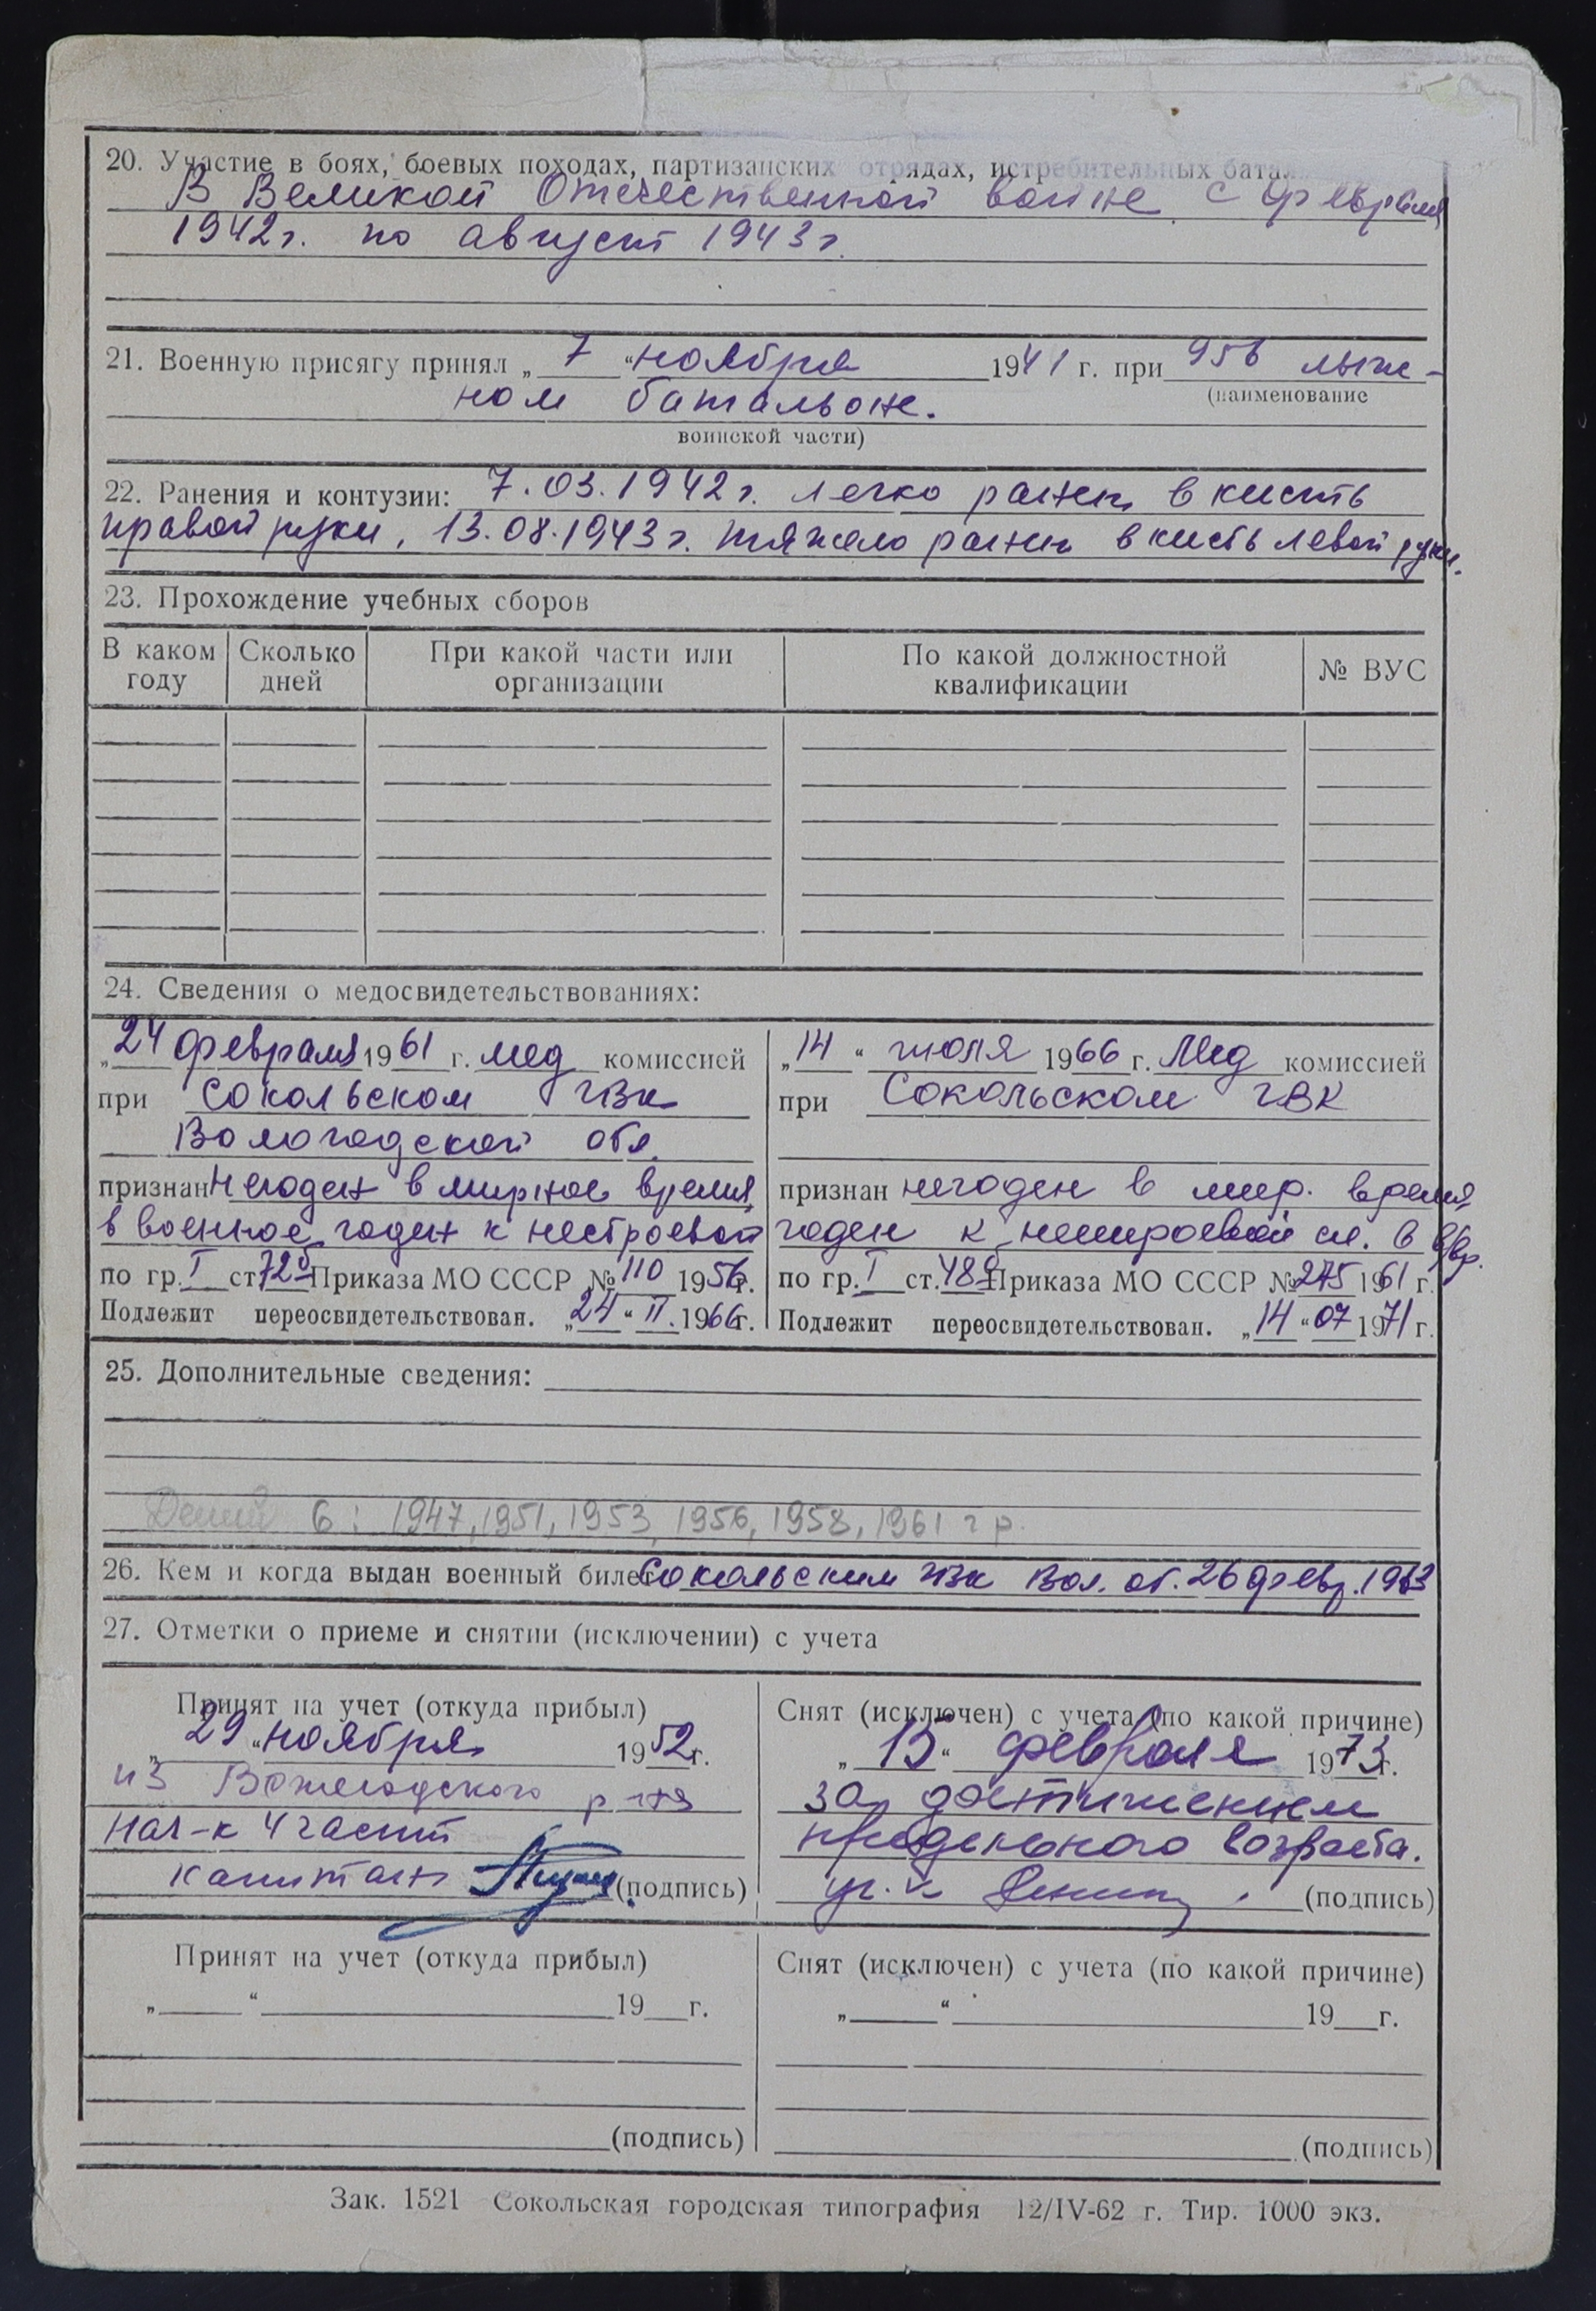 20. Участие в боях, боевых походах, партизанских отрядах, истребительных батал
В Великой Отечественной войне с февраля
1942 г. по август 1943 г.
21. Военную присягу принял „ 7 “ ноября 1941 г. при 956 лыж-
(наименование
ном батальоне.
воинской части)
22. Ранения и контузии: 7.03.1942 г. легко ранен в кисть
правой руки, 13.08.1943 г. тяжело ранен в кисть левой руки.
23. Прохождение учебных сборов
В каком году Сколько дней При какой части или организации По какой должностной квалификации № ВУС
24. Сведения о медосвидетельствованиях:
„24 февраля 1961 г. мед комиссией
при Сокольском ГВК
Вологодской обл.
признан негоден в мирное время,
в военное годен к нестроевой
по гр. I ст. 72б Приказа МО СССР № 110 1956 г.
Подлежит переосвидетельствован. „24“ II. 1966 г.
„14“ июля 1966 г. Мед комиссией
при Сокольском ГВК
признан негоден в мир. время,
годен к нестроевой сл. в в/вр.
по гр. I ст. 48 Приказа МО СССР № 275 1961 г.
Подлежит переосвидетельствован. „14“ 07 1971 г.
25. Дополнительные сведения:
Детей 6: 1947, 1951, 1953, 1956, 1958, 1961 г р.
26. Кем и когда выдан военный билет Сокольским ГВК Вол. об. 26 февр. 1963
27. Отметки о приеме и снятии (исключении) с учета
Принят на учет (откуда прибыл)
„29“ ноября 1952 г.
из Вожегодского р-на
Нач-к 4 части
капитан (подпись)
Снят (исключен) с учета (по какой причине)
„15“ февраля 1973 г.
за достижением
предельного возраста.
(подпись)
Принят на учет (откуда прибыл)
„ “ 19 г.
(подпись)
Снят (исключен) с учета (по какой причине)
„ “ 19 г.
(подпись)
Зак. 1521 Сокольская городская типография 12/IV-62 г. Тир. 1000 экз.